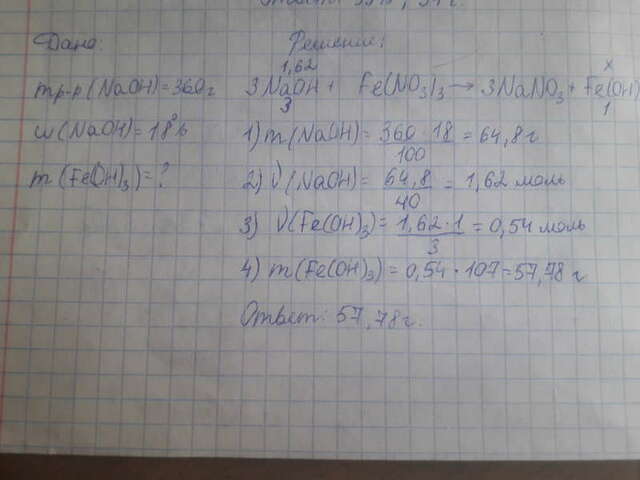 Дано: Решение:
mр-р (NaOH)=360г
ω(NaOH)=18%
m(Fe(OH)₃)=?
1,62 x
3NaOH + Fe(NO₃)₃ → 3NaNO₃ + Fe(OH)
3 1
1) m(NaOH)= 360·18/100 = 64,8г
2) ν(NaOH)= 64,8/40 = 1,62 моль
3) ν(Fe(OH)₃)= 1,62·1/3 = 0,54 моль
4) m(Fe(OH)₃)=0,54·107=57,78 г
Ответ: 57,78г.